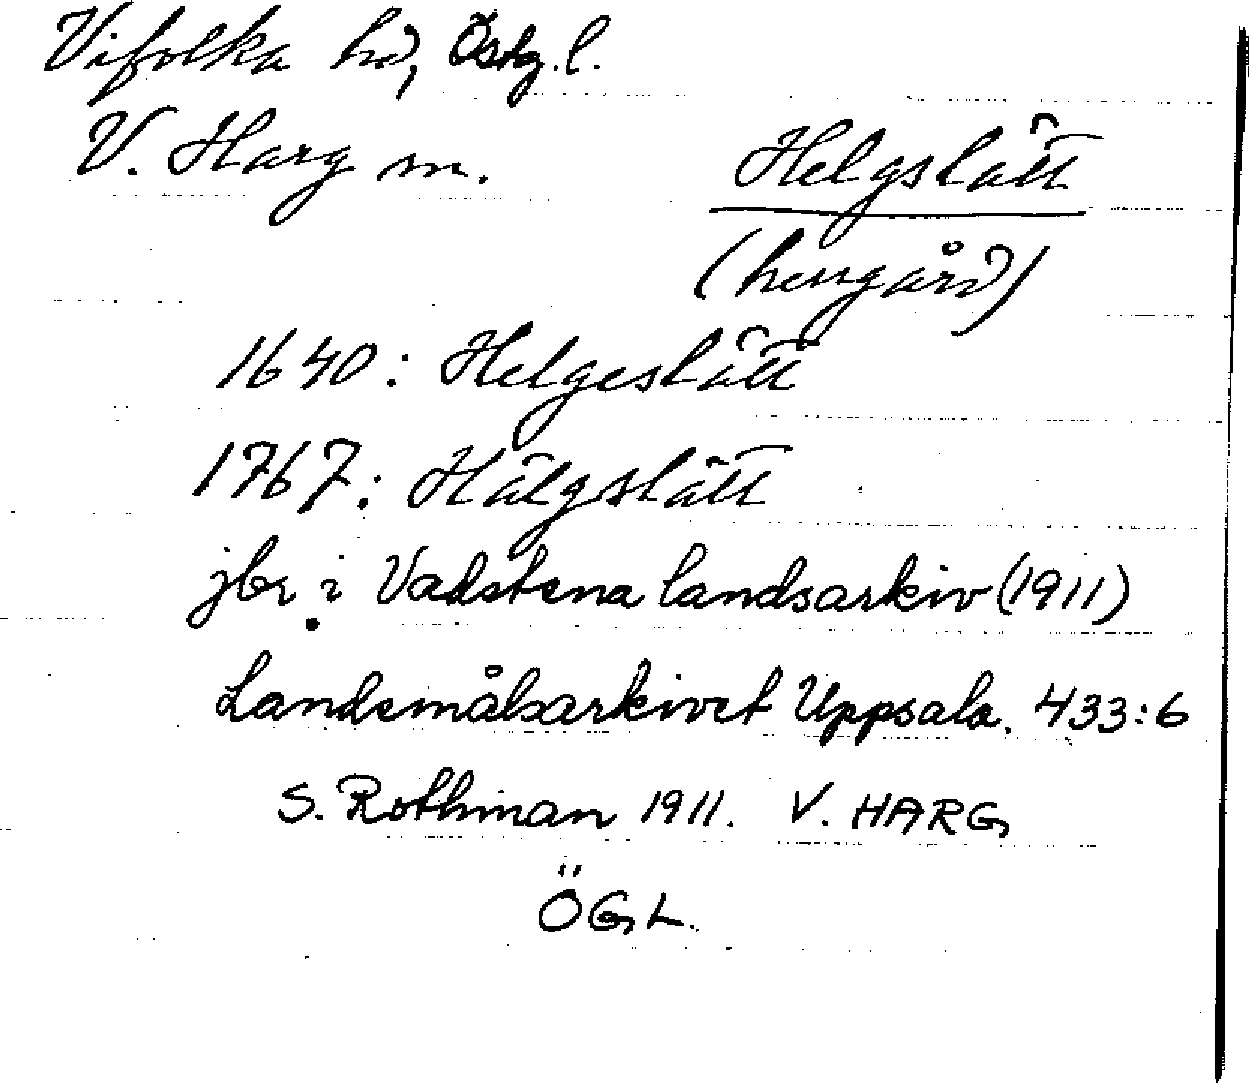 Vifolka hd, Östg. l.
V. Harg sn.
Helgslätt
(herrgård)
1640: Helgeslätt
1767: Hälgslätt
jbr i Vadstena landsarkiv (1911)
Landsmålsarkivet Uppsala. 433:6
S. Rothman 1911. V. HARG
ÖGL.